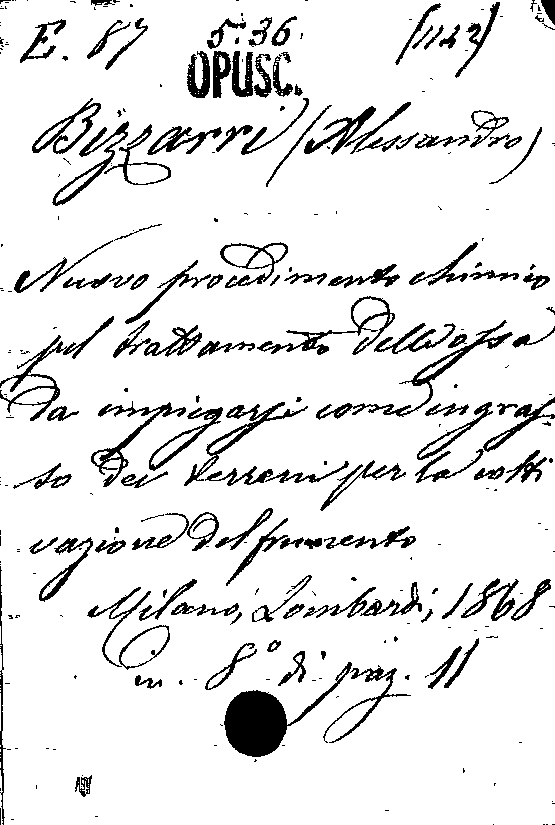 E. 87 5.36. (1142)
OPUSC.
Bizzarri (Alessandro)
Nuovo procedimento chimico
pel trattamento delle ossa
da impiegarsi come ingras-
so dei terreni per la colti
vazione del frumento
Milano, Lombardi, 1868
in. 8° di pag. 11